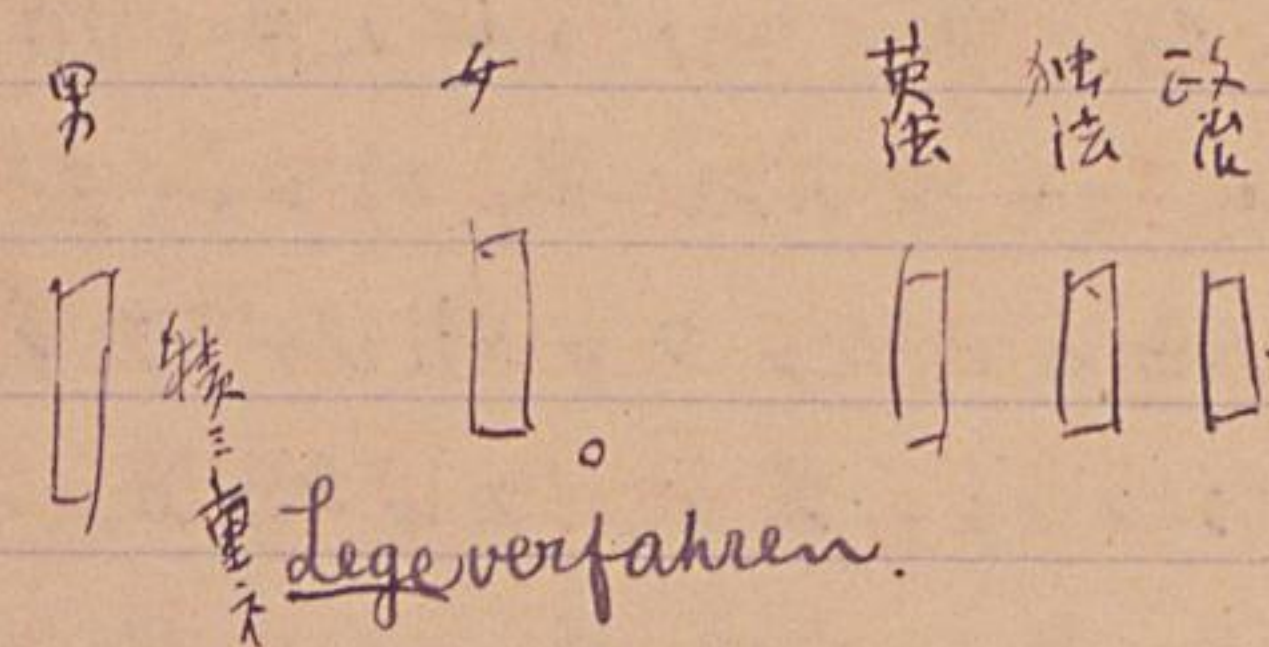 男
女
英法
独法
政治
積ミ重ネ
Legeverfahren.